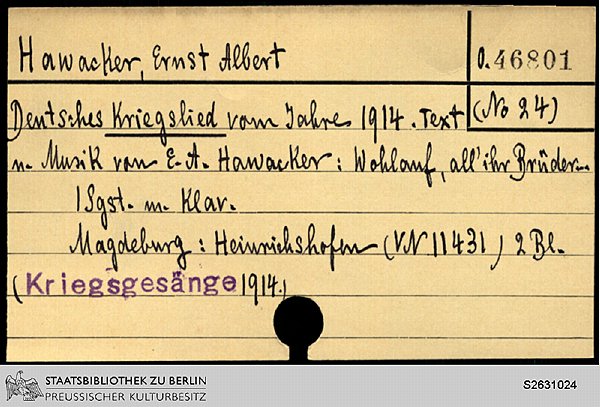 Hawacker, Ernst Albert
O. 46801
Deutsches Kriegslied vom Jahre 1914. Text
(No 24)
u. Musik von E. A. Hawacker: Wohlauf, all' ihr Brüder...
1 Sgst. m. Klav.
Magdeburg: Heinrichshofen (VN 11431) 2 Bl.
(Kriegsgesänge 1914.)
STAATSBIBLIOTHEK ZU BERLIN
PREUSSISCHER KULTURBESITZ
S2631024